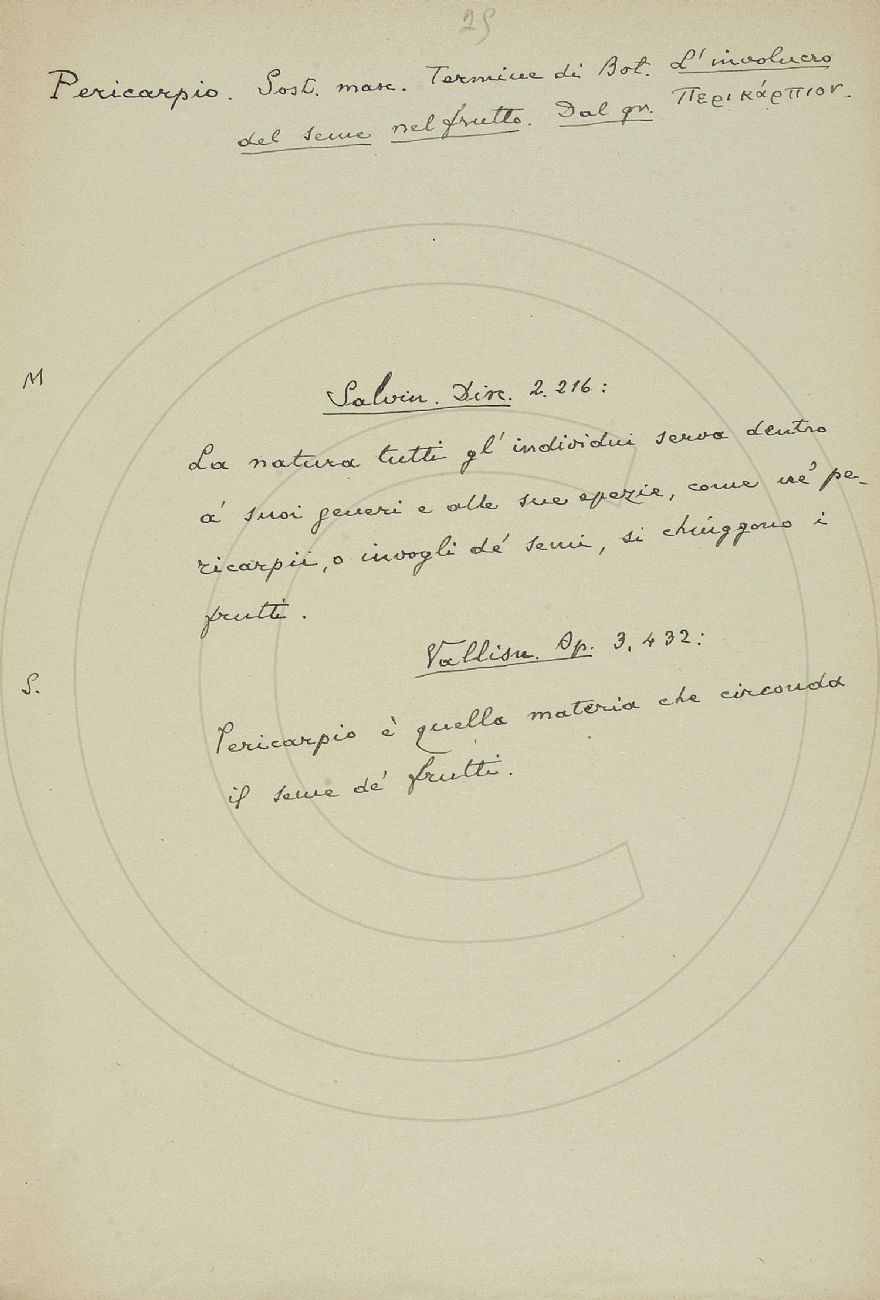 25
Pericarpio. Sost. masc. Termine di Bot. L'involucro
del seme nel frutto. Dal gr. Περικάρπιον.
M
Salvin. Disc. 2. 216:
La natura tutti gl' individui serva dentro
a' suoi generi e alle sue spezie, come ne' pe-
ricarpii, o invogli de' semi, si chiuggono i
frutti.
Vallisn. Op. 3. 432:
S.
Pericarpio è quella materia che circonda
il seme de' frutti.